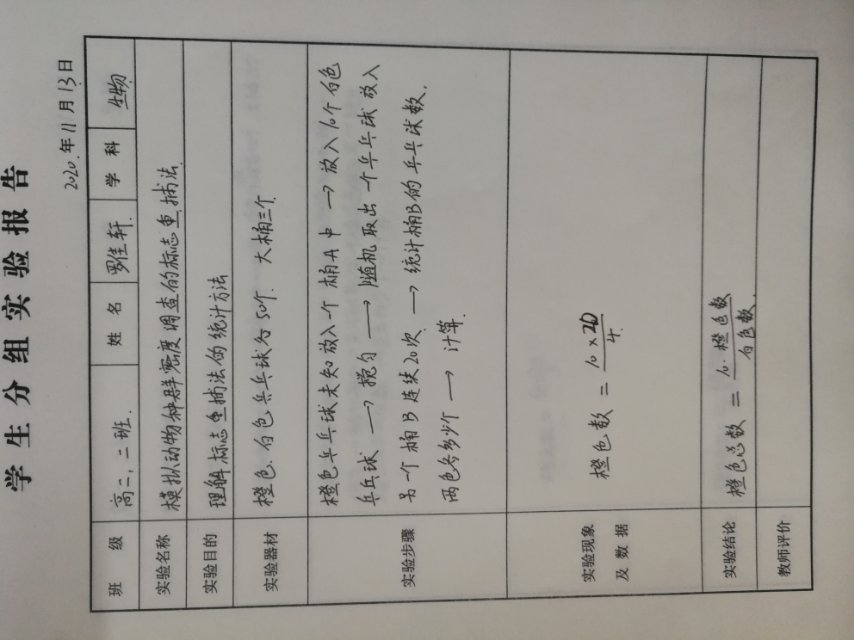 学生分组实验报告
2020年11月13日
班级 高二,二班. 姓名 罗佳轩. 学科 生物
实验名称 模拟动物种群密度调查的标志重捕法
实验目的 理解标志重捕法的统计方法
实验器材 橙色.白色乒乓球各50个. 大桶三个
实验步骤 橙色乒乓球未知放入一个桶A中 → 放入10个白色
乒乓球 → 搅匀 → 随机取出一个乒乓球放入
另一个桶B连续20次 → 统计桶B的乒乓球数,
两色各多少个 → 计算.
实验现象及数据 橙色数 = 10×20/4.
实验结论 橙色总数 = 10·橙色数/白色数.
教师评价